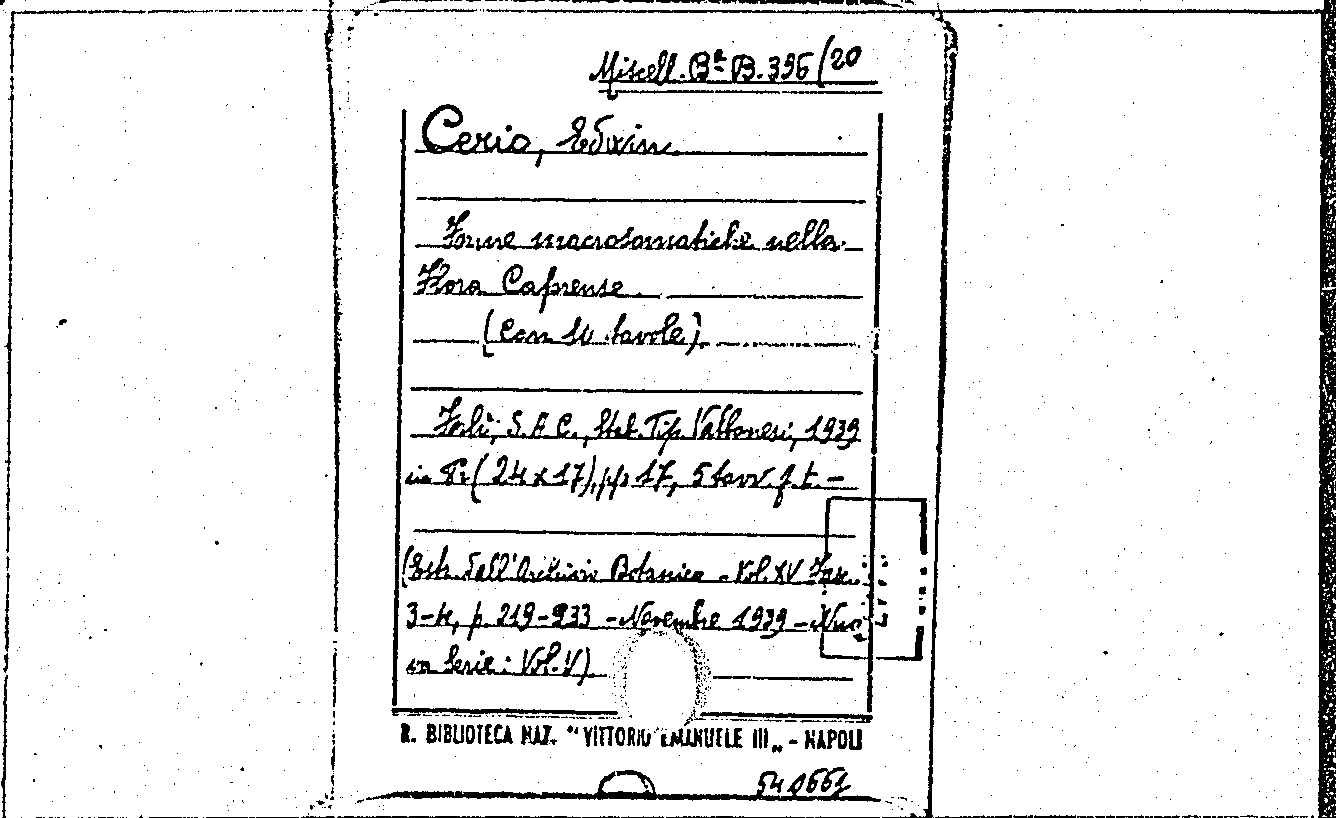 Miscell. Bª B. 396/20
Cerio, Edwin
Forme macrosomatiche nella
Flora Caprense
(Con 10 tavole)
Forlì, S.A.C., Stab. Tip. Valbonesi, 1939
in 8º (24x17), pp 17, 5 tavv. f. t. -
(Estr. dall'Archivio Botanico - Vol. XV Fasc.
3-4, p. 219-233 - Novembre 1939 -
Serie: Vol. V)
R. BIBLIOTECA NAZ. "VITTORIO EMANUELE III„ - NAPOLI
540661